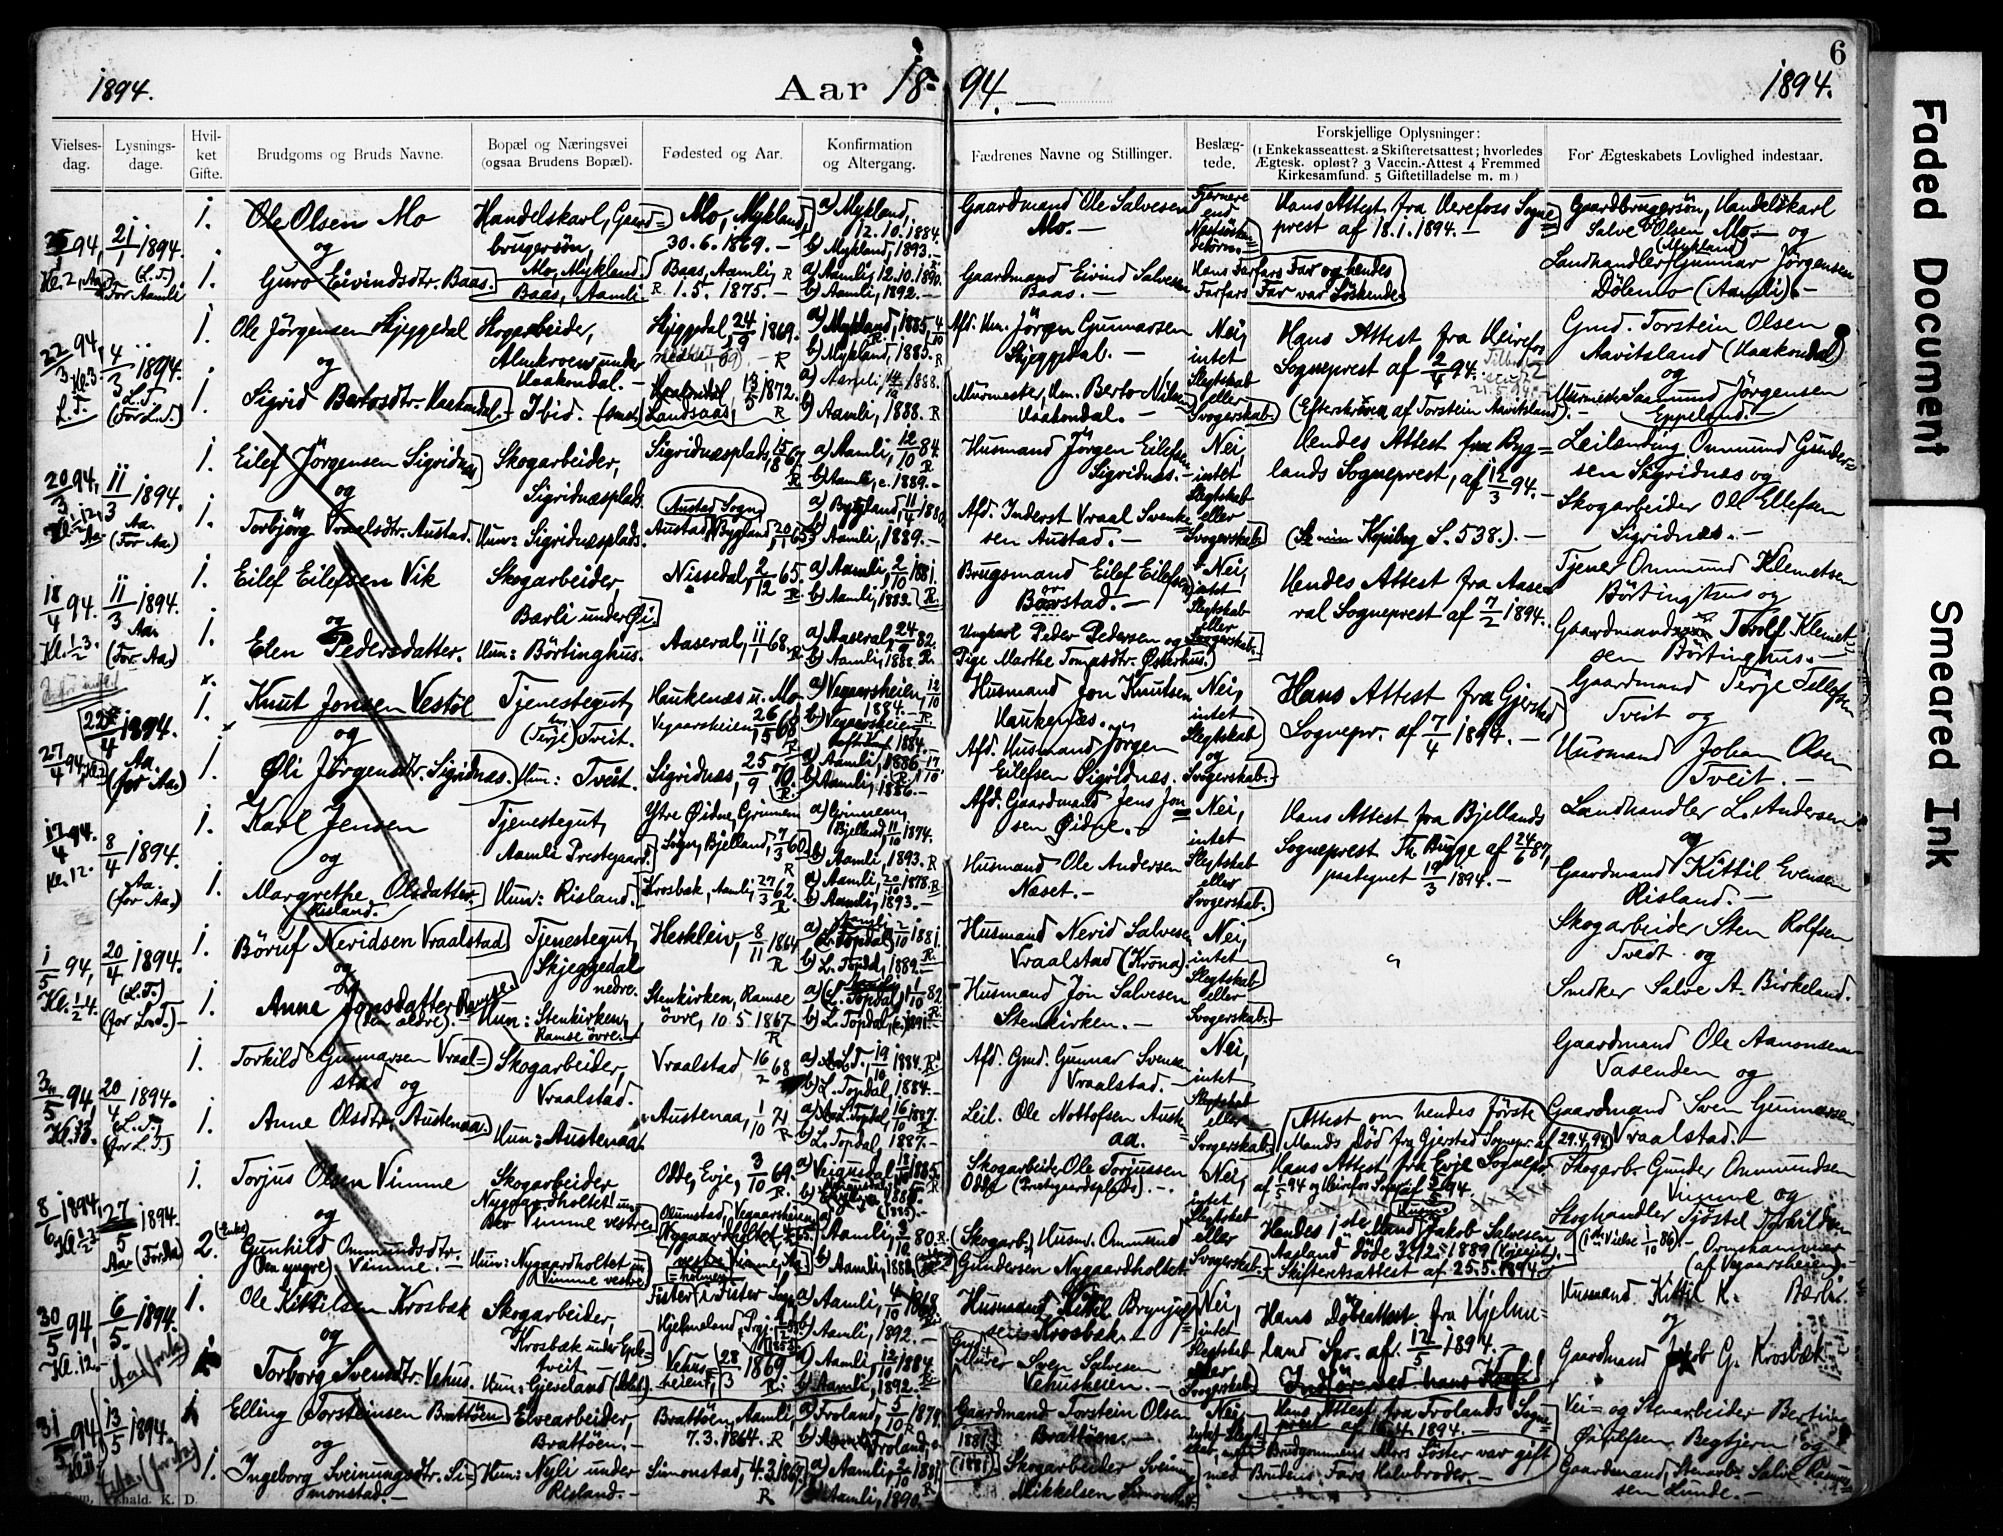 6
1894.
Aar 18 94. —
1894.
Faded Document
Smeared Ink
Vielses-
dag.
Lysnings-
dage.
Hvil-
ket
Gifte.
Brudgoms og Bruds Navne.
Bopæl og Næringsvei
(ogsaa Brudens Bopæl).
Fødested og Aar.
Konfirmation
og Altergang.
Fædrenes Navne og Stillinger.
Beslæg-
tede.
Forskjellige Oplysninger:
(1 Enkekasseattest. 2 Skifteretsattest; hvorledes
Ægtesk. opløst? 3 Vaccin.-Attest 4 Fremmed
Kirkesamfund. 5 Giftetilladelse m. m)
For Ægteskabets Lovlighed indestaar.
94, 21/1 1894.
Kl. 2, (L.T.)
For Aamli
1.
Ole Olsen Mo
og
1.
Guro Eivindsdtr. Baas.
Handelskarl, Gaard=
brugersøn,
Mo, Mykland.
Baas, Aamli
Mo, Mykland,
30.6.1869. —
Baas, Aamli, R
R 1.5.1875. —
a) Mykland,
12.10.1884.
b) Mykland, 1893. —
a) Aamli, 12.10.1890.
b) Aamli, 1892. —
Gaardmand Ole Salvesen
Mo. —
Gaardmand Eivind Salvesen
Baas. —
Fjernere
end
Næstsøsken-
debørn.
Hans Farfars Far og hendes
Farfars Far var Søskende.
Hans Attest fra Herefoss Sogne=
prest af 18.1.1894. —
Gaardbrugersøn, Handelskarl
Salve Olsen Mo — og
(Mykland)
Landhandler Gunnar Jörgensen
Dölemo (Aamli). —
22/3 94, Kl. 3. L.T.
4/3 1894.
L.T.
(For L.T.)
1.
Ole Jörgensen Skjeggedal
og
1.
Sigrid Bertosdtr. Haakondal.
Skogarbeider,
under
Haakondal. —
Ibid.
Skjeggedal 24/9 1869.
R
13/5 1872.
Landsaas, R
a) Mykland, 1885, 4/10
b) Mykland, 1885. R
a) Aamli, 14/10 1888.
b) Aamli, 1888. R
Afd. Hm. Jörgen Gunnarsen
Skjeggedal. —
Murmester, Hm. Berto Nilsen
Haakondal. —
Nei,
intet
Slegtskab
eller
Svogerskab.
Hans Attest fra
Sogneprest af 2/4 94.
(Efterskriven af Torstein Aavitsland). —
Gmd. Torstein Olsen
Aavitsland (Haakondal)
og
Murmester Samund Jörgensen
Eppeland. —
20/3 94,
Kl. 1/2 12, Aa.
11/3 1894.
Aa.
(For Aa.)
1.
Eilef Jörgensen Sigridnæs
og
1.
Torbjörg Vraalsdtr. Austad.
Skogarbeider,
Sigridnæsplads.
Hun: Sigridnæsplads.
Sigridnæsplads, 15/8 67.
R
Austad Sogn,
Austad, Bygland, 20/11 65.
a) Aamli, 12/10 84.
R.
b) Aamli, c. 1889. —
a) Bygland, 11/4 1880
b) Aamli, 1889. —
Husmand Jörgen Eilefsen
Sigridnæs. —
Afd. Inderst Vraal Svenke=
sen Austad. —
Nei,
intet
Slegtskab
eller
Svogerskab.
Hendes Attest fra Byg=
lands Sogneprest, af 12/3 94. —
(Se min Kopibog S. 538.). —
Leilending Ommund Gunder=
sen Sigridnæs og
Skogarbeider Ole Ellefsen
Sigridnæs. —
18/4 94.
Kl. 1/2 3.
11/3 1894.
Aa.
(For Aa.)
1.
Eilef Eilefsen Vik
og
1.
Elen Pedersdatter.
Skogarbeider,
Barli under Öi.
Hun: Börtinghus.
Nissedal, 2/12 65.
R.
Aaseral, 11/1 68. R.
a) Aamli, 2/10 1881.
b) Aamli, 1882. R.
a) Aaseral, 24/9 82.
b) Aamli, 1888. R.
Brugsmand Eilef Eilefsen
Børstad. —
Ungkarl Peder Pedersen og
Pige Marthe Tomasdtr. Österhus.
Nei,
intet
Slegtskab
eller
Svogerskab.
Hendes Attest fra Aase=
ral Sogneprest af 7/2 1894.
Tjener Ommund Klemetsen
Börtinghus og
Gaardmand Torolf Klemet=
sen Börtinghus. —
22/4 1894.
27/4 94,
Aa.
(for Aa.)
1.
Knut Jonsen Vestöl
og
1.
Öli Jörgensdtr. Sigridnæs.
Tjenestegut,
(hos Terje) Tveit.
Hun: Tveit.
Haukenæs u. Mo
Vegaarsheien, 26/5 1868
R
Sigridnæs, 25/9 70.
R.
a) Vegaarsheien, 12/10
1884. R
b) Vegaarsheien
1884. —
a) Aamli, 1886. 17/10
b) Aamli, 1886. —
Husmand Jon Knutsen
Haukenæs. —
Afd. Husmand Jörgen
Eilefsen Sigridnæs. —
Nei,
intet
Slegtskab
og
Svogerskab. —
Hans Attest fra Gjerstad
Sognepr. af 7/4 1894. —
Gaardmand Terje Tellefsen
Tveit og
Husmand Johan Olsen
Tveit. —
17/4 94.
Kl. 12.
8/4 1894.
Aa.
(for Aa.)
1.
Karl Jensen
og
1.
Margrethe Olsdatter
Risland. —
Tjenestegut,
Aamli Prestegaard.
Hun: Risland.
Ytre Øidne, Grinnem
Sogn, Bjelland, 7/3 60.
R
Krosbæk, Aamli, 27/3 62.
R
a) Grinnem,
Bjelland, 11/10 1874.
b) Aamli, 1893. R
a) Aamli, 20/10 1878. R
b) Aamli, 1893. —
Afd. Gaardmand Jens Jon=
sen Øidne. —
Husmand Ole Andersen
Næset. —
Nei,
intet
Slegtskab
eller
Svogerskab.
Hans Attest fra Bjellands
Sogneprest Th. Bugge af 24/6 87,
paategnet 19/3 1894. —
Landhandler L. Andersen
og
Gaardmand Kittil Evensen
Risland. —
1/5 94,
Kl. 1/2 4.
20/4 1894.
(L.T.)
(for L.T.) —
1.
Böruf Neridsen Vraalstad
og
1.
Anne Jonsdatter Ramse.
(den ældre). —
Tjenestegut,
Skjeggedal
nedre.
Hun: Stenkirken,
Ramse övre.
Heskleiv, 8/11 1864
R
Stenkirken, Ramse
övre, 10.5.1867
R
a) Aamli
2/10 1881.
b) L. Topdal, 1882. R.
a) L. Topdal, 1/10 82.
b) L. Topdal, 1891. —
Husmand Nerid Salvesen
Vraalstad (Kröna). —
Husmand Jon Salvesen
Stenkirken. —
Nei,
intet
Slegtskab
eller
Svogerskab. —
Skogarbeider Sten Rolfsen
Tvedt og
Snedker Salve A. Birkeland.
3/5 94,
Kl. 3.
20/4 1894.
L.T.
(for L.T.)
1.
Torkild Gunnarsen Vraal=
stad og
1.
Anne Olsdtr. Austenaa.
Skogarbeider,
Vraalstad.
Hun: Austenaa.
Vraalstad 16/2 68
Austenaa, 1/10 71
R
a) L.T., 19/10 1884. R.
b) L. Topdal, 1884.
a) L. Topdal, 16/10 1887.
b) L. Topdal, 1887. —
Afd. Gmd. Gunnar Svense
Vraalstad. —
Leil. Ole Nottofsen Austen
aa.
Nei,
intet
Slegtskab
eller
Svogerskab.
Gaardmand Ole Aanonsen
Vasenden og
Gaardmand Sven Gunnarsen
Vraalstad. —
8/6 1894,
27/5 1894.
Aa. (For Aa.)
1.
Torjus Olsen Vimme
og
2.
(Enke)
Gunhild Ommundsdtr.
(den yngre) Vimme. —
Skogarbeider
Nygaardholtet un=
der Vimme vestre
Hun: Nygaardholtet u.
Vimme vestre
Odde, Evje, 3/10 69.
R.
Olumstad, Vegaarsheien,
Nygaardholtet,
holmen
18/10 1885.
b) 1885.
(1885). —
a) Aamli, 3/10 80. R.
b) Aamli, 1881.
Skogarbeider Ole Torjussen
Odde (Prestgaardsplads). —
(Skogarb.) Husm. Ommund
Gundersen Nygaardholtet.
Nei,
intet
Slegtskab
eller
Svogerskab. —
Attest om hendes förste
Mands Död fra Gjerstad Sognepr. af 29.4.94.
Hans Attest fra Evje Sognepr.
af 1/5 94 og Herefos Sogn. af 2/5 94
Hendes 1ste Mand Jakob Salvesen
Aasland döde 3.12.1889 (Vejejet). —
Skifteretsattest af 25.5.1894. —
Skogarb. Gunder Ommundsen
Vimme og
Skoghandler Tjöstel Torkildsen
(1ste Vielse 1/10 86). — Ormshammer
(af Vegaarsheien). —
30/5 94,
Kl. 12. —
6/5 1894.
Aa. (for Aa.)
1.
Ole Kittilsen Krosbæk
og
1.
Torborg Svensdtr. Vehus.
Skogarbeider,
Krosbæk under Eple=
tveit —
Hun: Gjeveland
Fister i Fister Sogn
Hjelmeland Prgj.
Vehus=
heien, 28/3 1869
R.
a) Aamli, 4/10 1868.
b) Aamli, 1892. —
a) Aamli, 12/10 1884.
b) Aamli, 1892. —
Husmand Kittil Brynjulf=
sen Krosbæk. —
Gmd. +
Murer Sven Salvesen
Vehusheien. —
Nei,
intet
Slegtskab
eller
Svogerskab.
Hans Döbeattest fra Hjelme=
land Spr. af 12/5 1894. —
Indför ved hans Konf!
Husmand Kittil K. Barli
og
Gaardmand Jakob G. Krosbæk.
31/5 94,
13/5 1894.
Aa. (for Aa.)
1.
Elling Torsteinsen Brattöen
og
1.
Ingeborg Sveinungsdtr. Si=
monstad. —
Elvearbeider,
Brattöen. —
Hun: Nyli under
Risland. —
Brattöen, Aamli,
7.3.1864. R
Simonstad, 4.3.1867,
R
a) Froland, 5/10 1879.
b) Froland,
a) Aamli, 2/10 1881
b) Aamli, 1890. —
Gaardmand Torstein Olsen
Brattöen. —
1881.
(1881)
Skogarbeider Sveinung
Mikkelsen Simonstad.
Nei,
intet Slegt=
skab, men Brudgommens Mors Söster var gift
med Brudens Fars Halvbroder. —
Hans Attest fra Frolands Sogne=
prest af 16.4.1894. —
Vei= og Stenarbeider Bertin
Begtjern og
Gaardmand, Stenarb. Salve Rasmus=
sen Lunde. —
K. D.